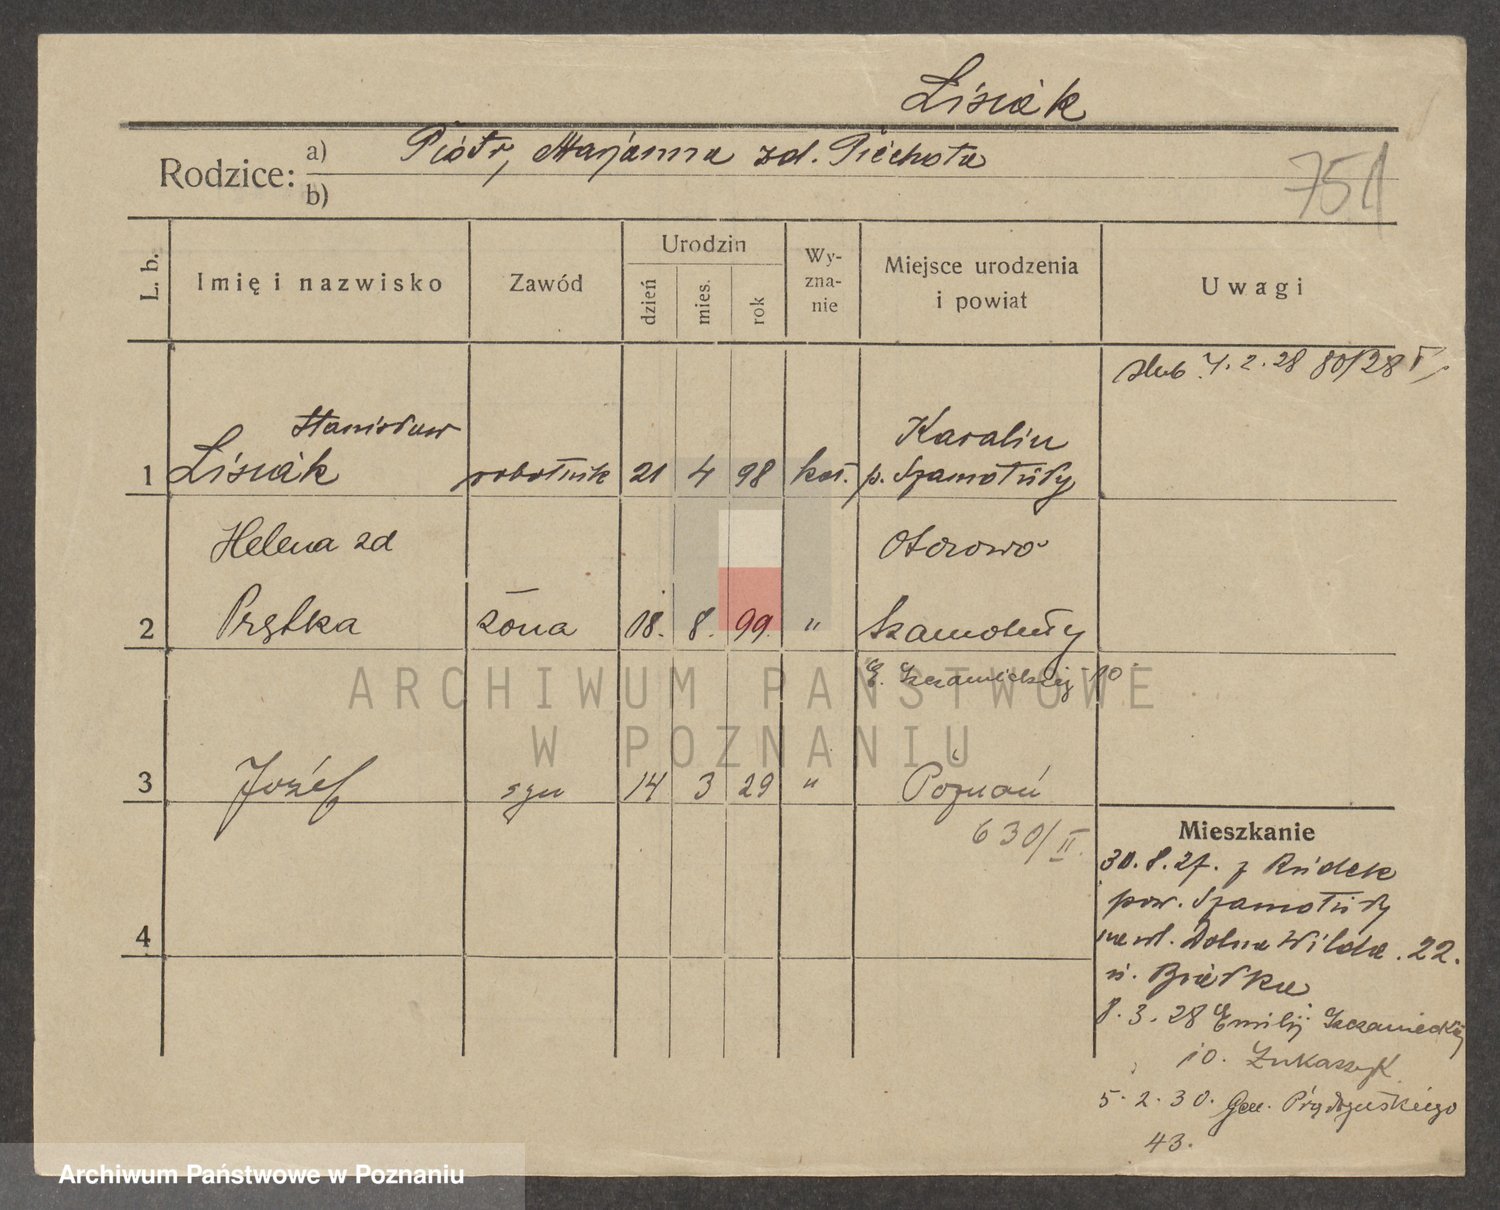 Lisiak
Rodzice: a) Piotr, Marjanna zd. Piechota
b)
751
L. b.
Imię i nazwisko
Zawód
Urodzin
dzień
mies.
rok
Wy-
zna-
nie
Miejsce urodzenia
i powiat
Uwagi
ślub 7.2.28 80/28 V
Stanisław Karolin
1 Lisiak robotnik 21 4 98 kat. p. Szamotuły
Helena zd Otorowo
2 Prętka żona 18. 8. 99. " Szamotuły
E. Szczanieckiej 10
3 Józef syn 14 3 29 " Poznań
630/II
4
Mieszkanie
30.8.27. z Rudek
pow. Szamotuły
na ul. Dolna Wilda. 22.
u.
8.3.28 Emilji Szczanieckiej
10. Łukaszyk
5.2.30. Gen. Prądzyńskiego
43.
ARCHIWUM PAŃSTWOWE
W POZNANIU
Archiwum Państwowe w Poznaniu